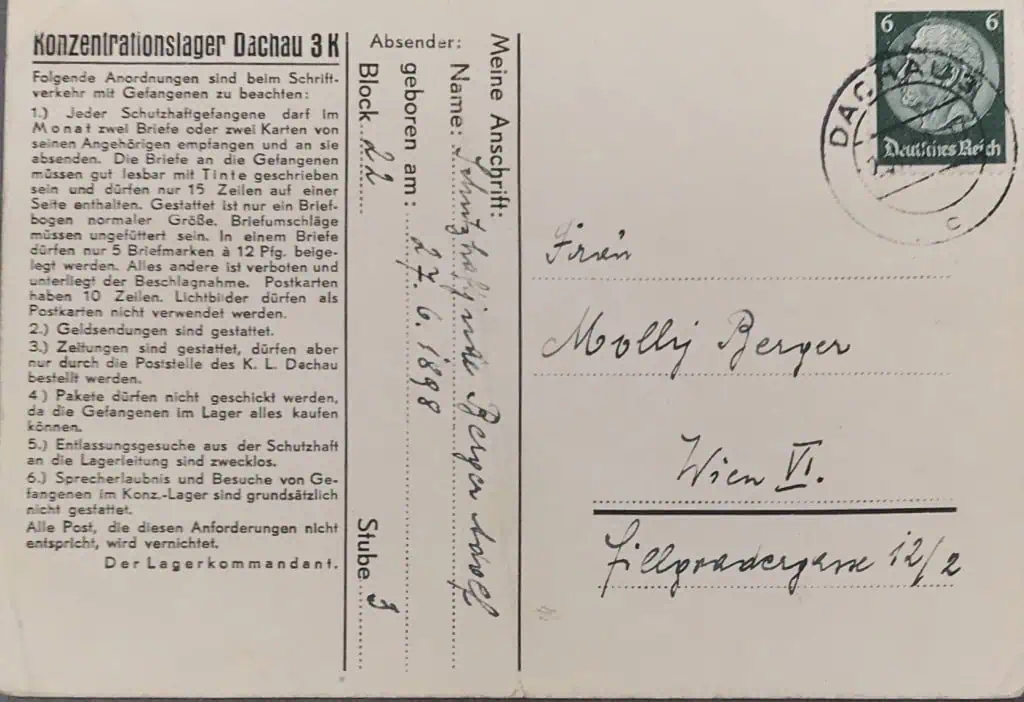 Konzentrationslager Dachau 3 K
Folgende Anordnungen sind beim Schrift-
verkehr mit Gefangenen zu beachten:
1.) Jeder Schutzhaftgefangene darf im
Monat zwei Briefe oder zwei Karten von
seinen Angehörigen empfangen und an sie
absenden. Die Briefe an die Gefangenen
müssen gut lesbar mit Tinte geschrieben
sein und dürfen nur 15 Zeilen auf einer
Seite enthalten. Gestattet ist nur ein Brief-
bogen normaler Größe. Briefumschläge
müssen ungefüttert sein. In einem Briefe
dürfen nur 5 Briefmarken à 12 Pfg. beige-
legt werden. Alles andere ist verboten und
unterliegt der Beschlagnahme. Postkarten
haben 10 Zeilen. Lichtbilder dürfen als
Postkarten nicht verwendet werden.
2.) Geldsendungen sind gestattet.
3.) Zeitungen sind gestattet, dürfen aber
nur durch die Poststelle des K. L. Dachau
bestellt werden.
4.) Pakete dürfen nicht geschickt werden,
da die Gefangenen im Lager alles kaufen
können.
5.) Entlassungsgesuche aus der Schutzhaft
an die Lagerleitung sind zwecklos.
6.) Sprecherlaubnis und Besuche von Ge-
fangenen im Konz.-Lager sind grundsätzlich
nicht gestattet.
Alle Post, die diesen Anforderungen nicht
entspricht, wird vernichtet.
Der Lagerkommandant.
Absender:
Meine Anschrift:
Name: Schutzhaftjude Berger Adolf
geboren am: 27. 6. 1898
Block 22 Stube 3
6 6
Deutsches Reich
DACHAU 3
c
Frau
Molly Berger
Wien VI.
Fillgradergasse 12/2